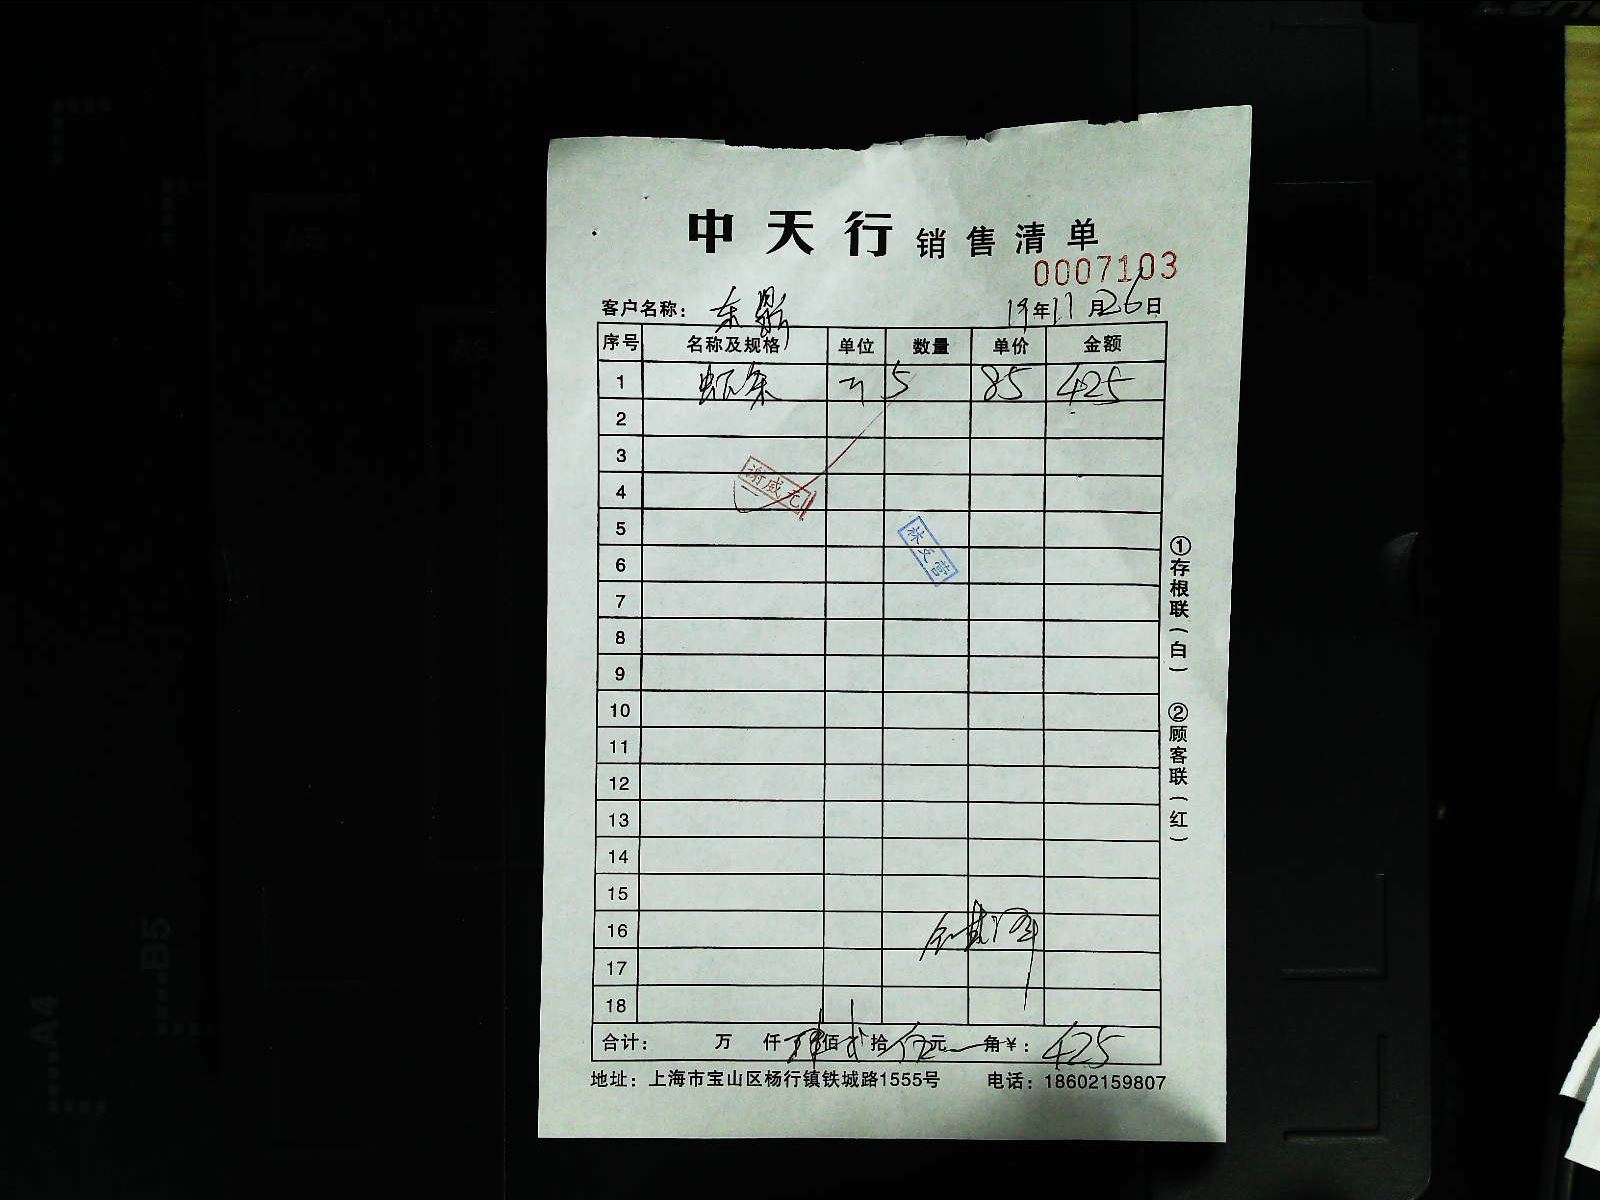 中天行 销售清单
0007103
客户名称： 东鼎 19年11月26日
序号 名称及规格 单位 数量 单价 金额
1 虾条 5 85 425
2
3
4 谢威尤
5
6 林文营
7
8
9
10
11
12
13
14
15
16
17
18
合计： 万 仟 肆佰 贰拾 伍元 角¥：425
地址：上海市宝山区杨行镇铁城路1555号 电话：18602159807
①存根联(白) ②顾客联(红)
A4
B5